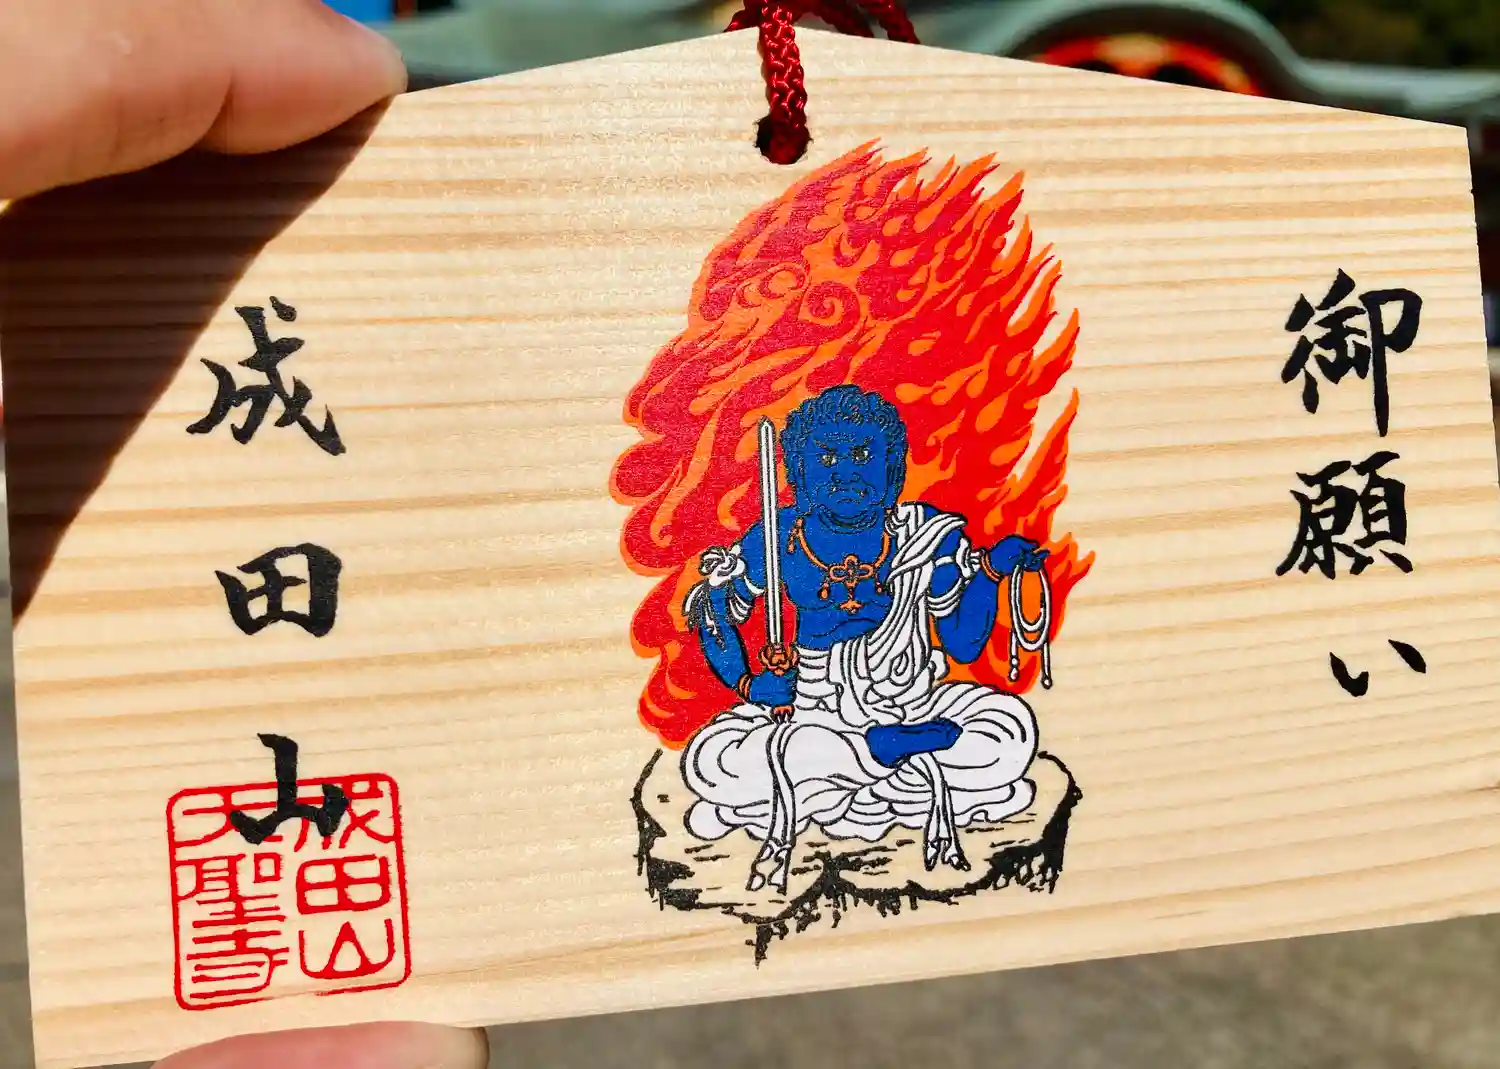 御願い
成田山
成田山
大聖寺